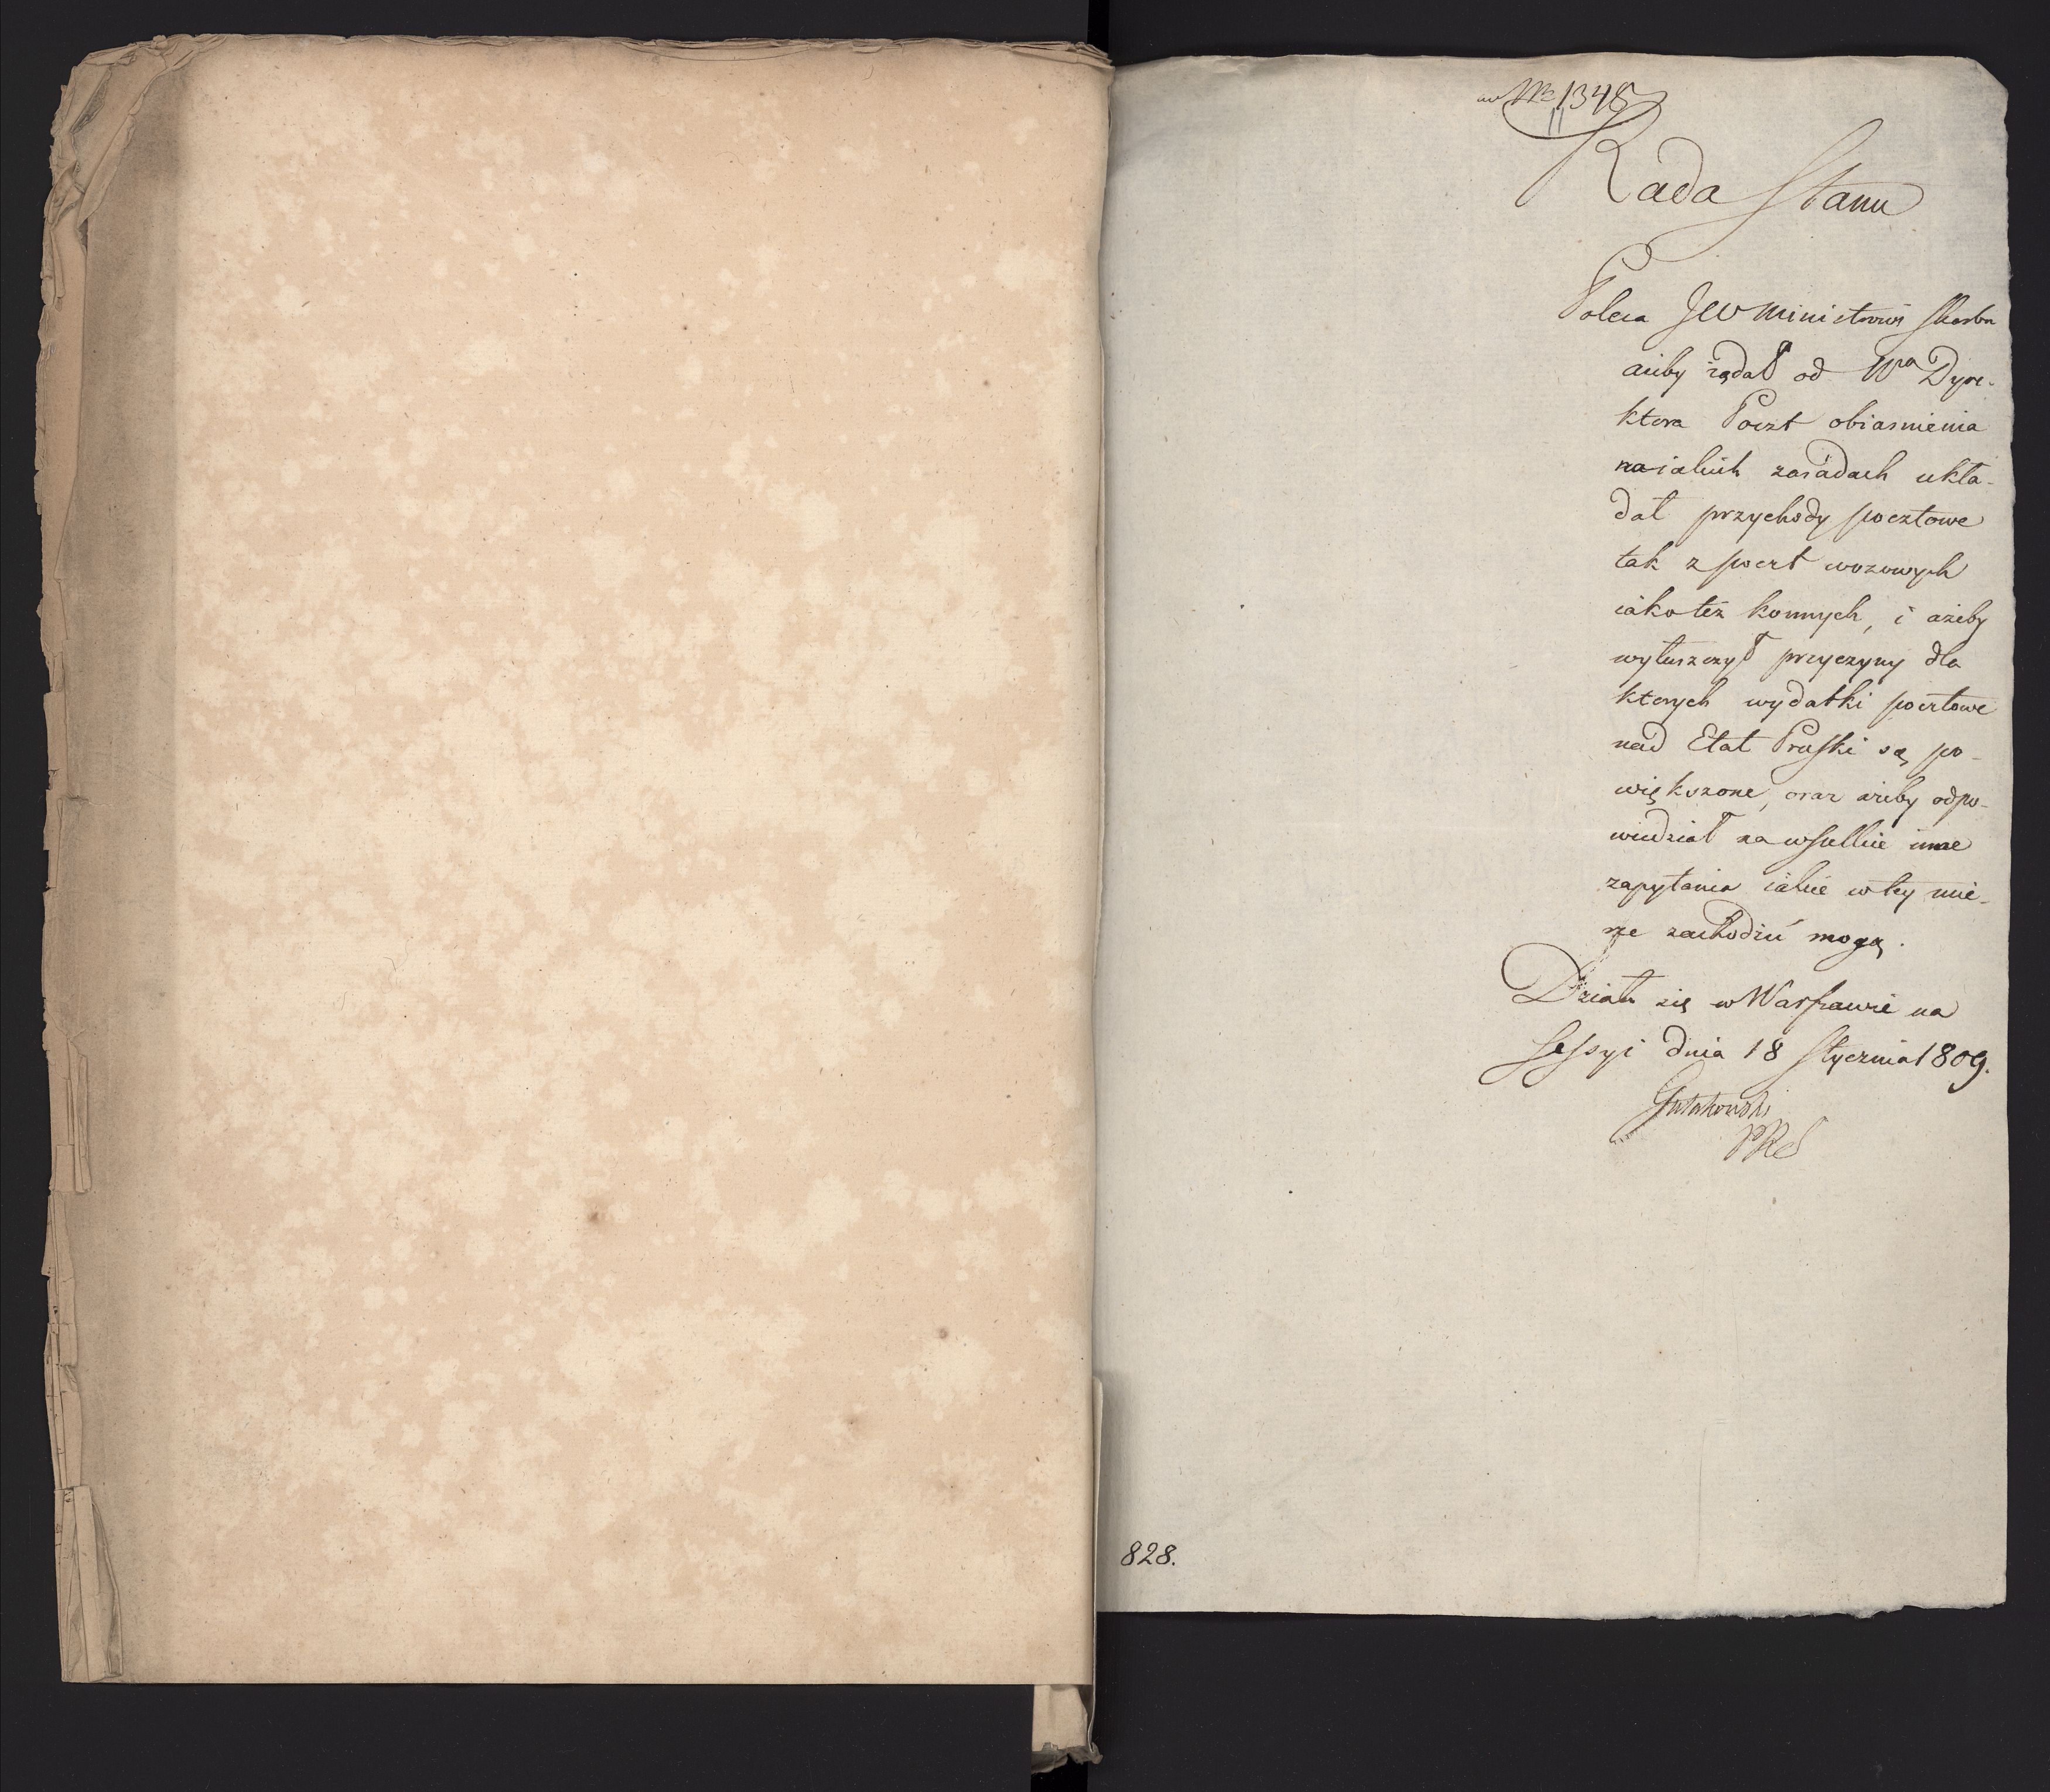 ad Nro 1348
Rada Stanu
Poleca JW Ministrowi Skarbu
ażeby żądał od Wgo Dyre-
ktora Poczt obiasnienia
na iakich zasadach ukła-
dał przychody pocztowe
tak z poczt wozowych
iako też konnych, i ażeby
wyłuszczył przyczyny dla
ktorych wydatki pocztowe
nad Etat Pruski są po-
większone, oraz ażeby odpo-
wiedział na wszelkie inne
zapytania iakie w tey mie-
rze zachodzić mogą.
Działo się w Warszawie na
Sessyi dnia 18 Stycznia 1809.
Gutakowski
PRS
828.